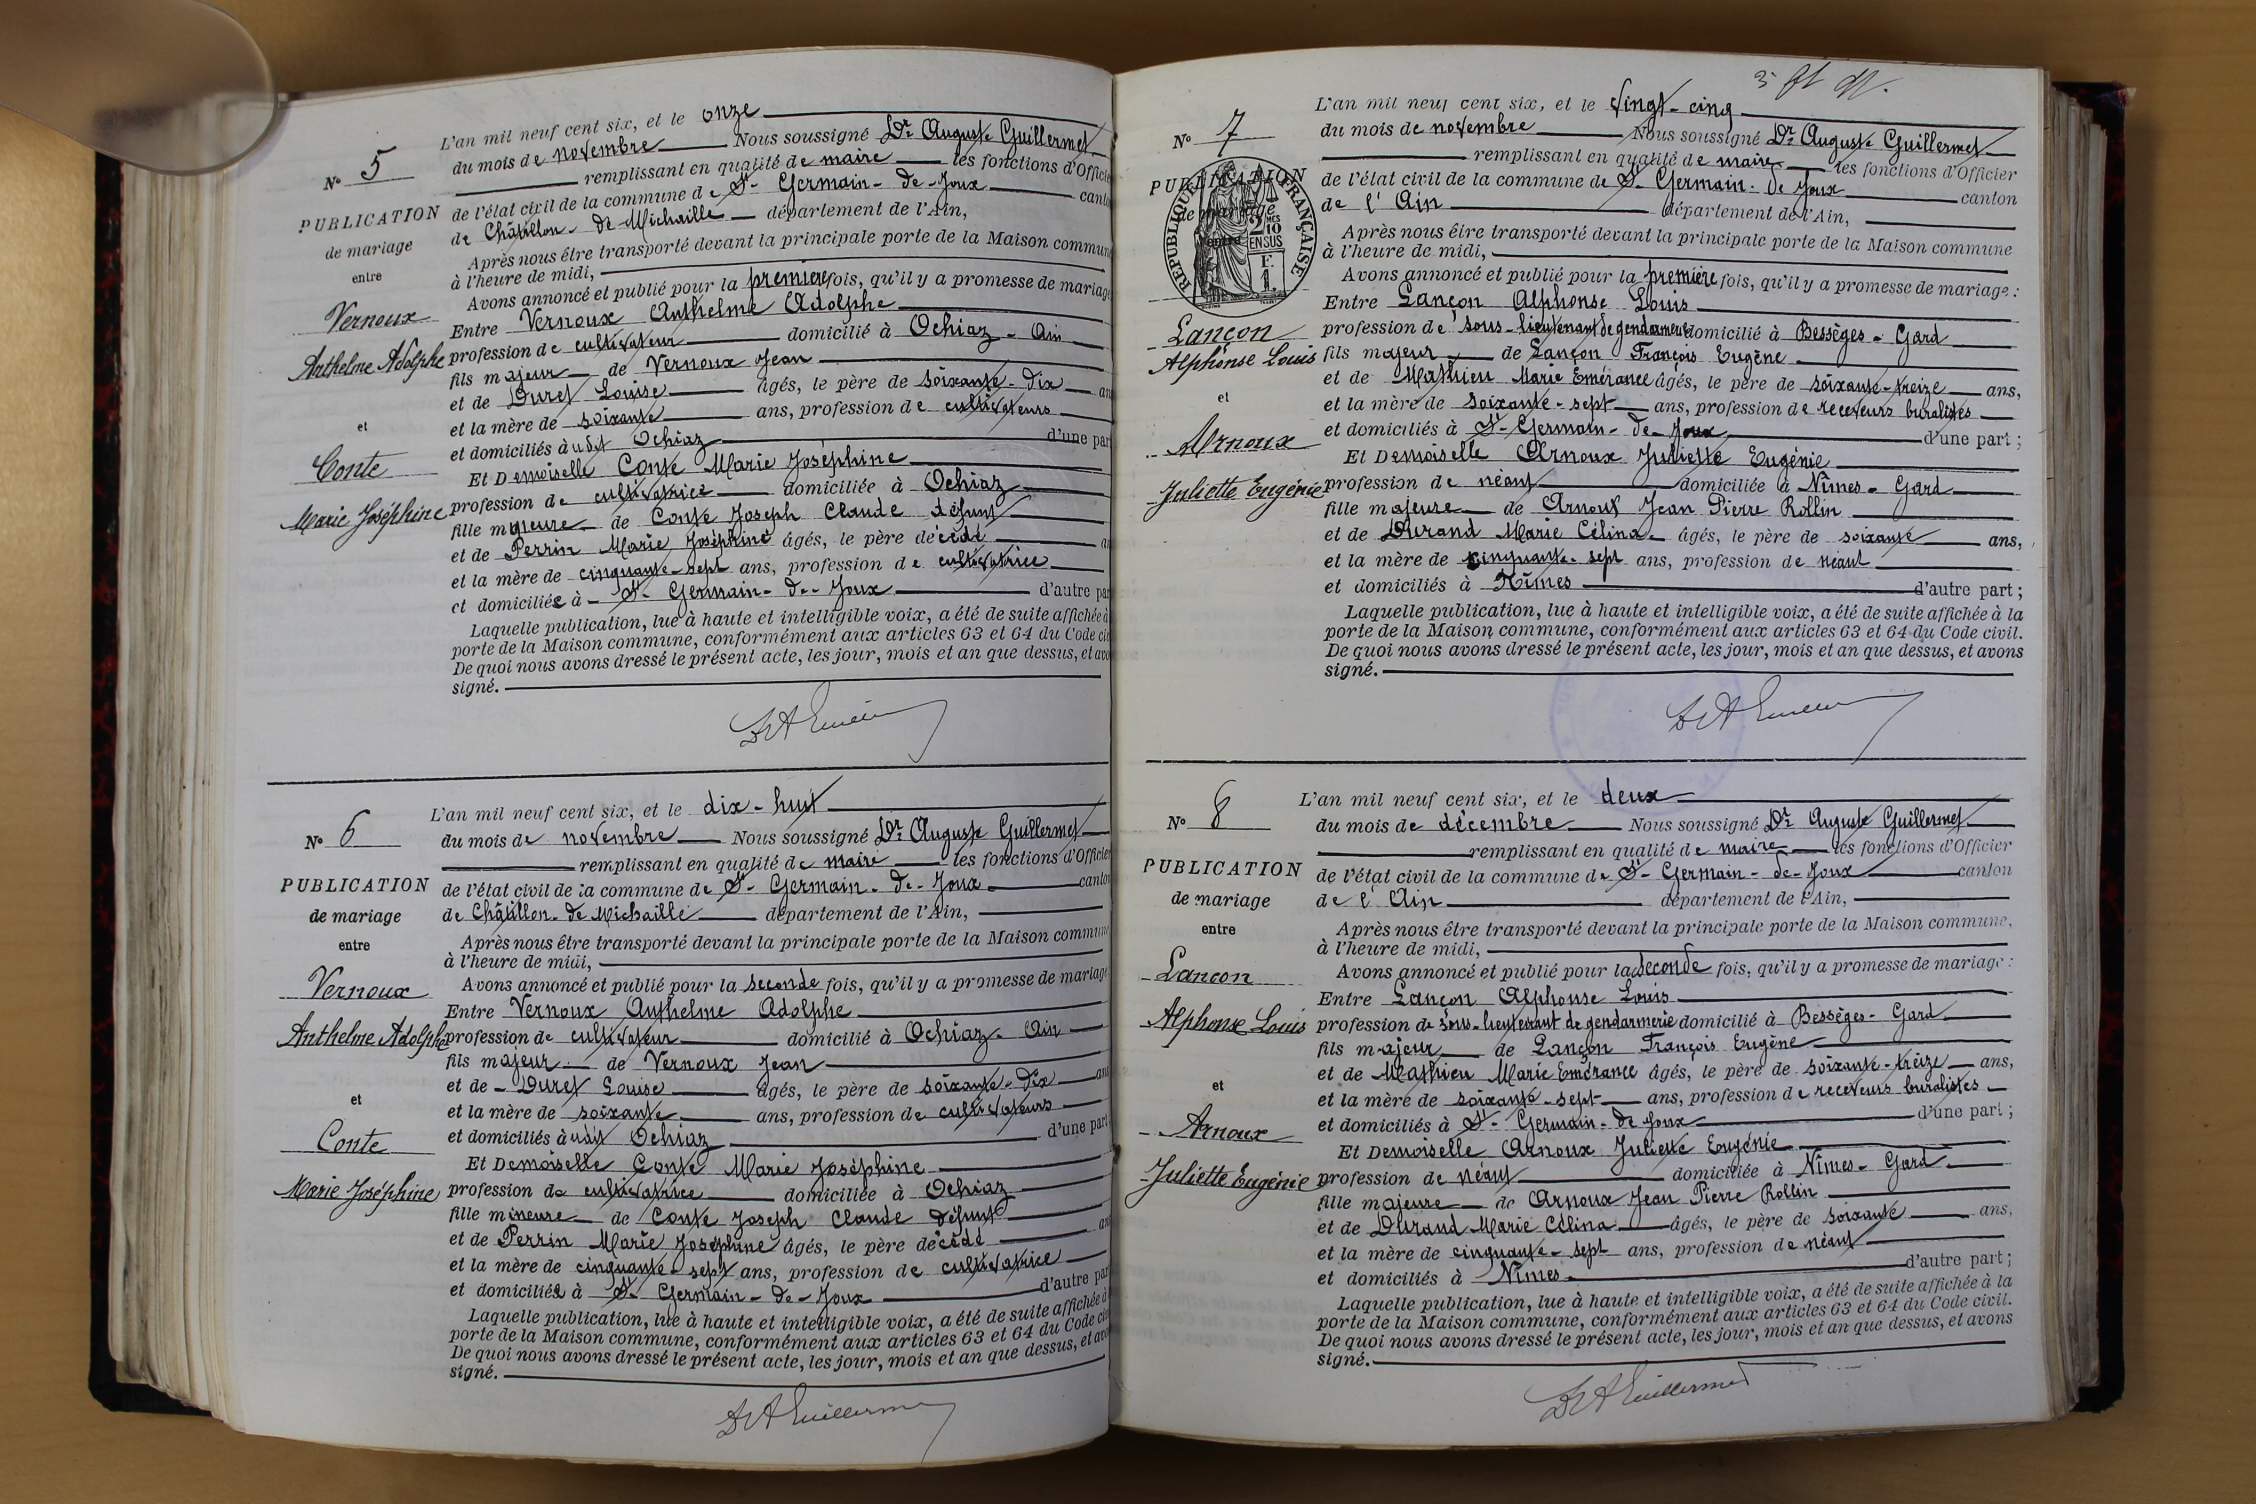 N° 5
PUBLICATION
de mariage
entre
Vernoux
Anthelme Adolphe
et
Conte
Marie Joséphine
L'an mil neuf cent six, et le onze
du mois de novembre Nous soussigné Dr Auguste Guillermet
remplissant en qualité de maire les fonctions d'Officier
de l'état civil de la commune de St- Germain- de- Joux canton
de Châtillon- de- Michaille département de l'Ain,
Après nous être transporté devant la principale porte de la Maison commune
à l'heure de midi,
Avons annoncé et publié pour la première fois, qu'il y a promesse de mariage
Entre Vernoux Anthelme Adolphe
profession de cultivateur domicilié à Ochiaz - Ain
fils majeur de Vernoux Jean
et de Duret Louise âgés, le père de soixante- dix ans
et la mère de soixante ans, profession de cultivateurs
et domiciliés à udit Ochiaz d'une part
Et Demoiselle Conte Marie Joséphine
profession de cultivatrice domiciliée à Ochiaz
fille mineure de Conte Joseph Claude défunt
et de Perrin Marie Joséphine âgés, le père décédé an
et la mère de cinquante- sept ans, profession de cultivatrice
et domiciliée à St- Germain- de- Joux d'autre par
Laquelle publication, lue à haute et intelligible voix, a été de suite affichée à
porte de la Maison commune, conformément aux articles 63 et 64 du Code civ
De quoi nous avons dressé le présent acte, les jour, mois et an que dessus, et avo
signé.
N° 6
PUBLICATION
de mariage
entre
Vernoux
Anthelme Adolphe
et
Conte
Marie Joséphine
L'an mil neuf cent six, et le dix- huit
du mois de novembre Nous soussigné Dr Auguste Guillermet
remplissant en qualité de maire les fonctions d'Officier
de l'état civil de la commune de St- Germain- de- Joux canton
de Châtillon- de Michaille département de l'Ain,
Après nous être transporté devant la principale porte de la Maison commune
à l'heure de midi,
Avons annoncé et publié pour la seconde fois, qu'il y a promesse de mariage
Entre Vernoux Anthelme Adolphe
profession de cultivateur domicilié à Ochiaz- Ain
fils majeur de Vernoux Jean
et de Duret Louise âgés, le père de soixante- dix ans
et la mère de soixante ans, profession de cultivateurs
et domiciliés à udit Ochiaz d'une part
Et Demoiselle Conte Marie Joséphine
profession de cultivatrice domiciliée à Ochiaz
fille mineure de Conte Joseph Claude défunt
et de Perrin Marie Joséphine âgés, le père décédé an
et la mère de cinquante- sept ans, profession de cultivatrice
et domiciliée à St- Germain- de- Joux d'autre par
Laquelle publication, lue à haute et intelligible voix, a été de suite affichée à
porte de la Maison commune, conformément aux articles 63 et 64 du Code civ
De quoi nous avons dressé le présent acte, les jour, mois et an que dessus, et avo
signé.
Dr A Guillermet
N° 7
PUBLICATION
de mariage
entre
RÉPUBLIQUE FRANÇAISE
2/10 EN SUS
F. 1.
Lançon
Alphonse Louis
et
Arnoux
Juliette Eugénie
L'an mil neuf cent six, et le vingt- cinq
du mois de novembre Nous soussigné Dr Auguste Guillermet
remplissant en qualité de maire les fonctions d'Officier
de l'état civil de la commune de St- Germain- de Joux canton
de l'Ain département de l'Ain,
Après nous être transporté devant la principale porte de la Maison commune
à l'heure de midi,
Avons annoncé et publié pour la première fois, qu'il y a promesse de mariage :
Entre Lançon Alphonse Louis
profession de sous- lieutenant de gendarmerie domicilié à Bessèges - Gard
fils majeur de Lançon François Eugène
et de Mathieu Marie Emérance âgés, le père de soixante- treize ans,
et la mère de soixante- sept ans, profession de receveurs buralistes
et domiciliés à St- Germain- de- Joux d'une part ;
Et Demoiselle Arnoux Juliette Eugénie
profession de néant domiciliée à Nîmes- Gard
fille majeure de Arnoux Jean Pierre Rollin
et de Durand Marie Célina âgés, le père de soixante ans,
et la mère de cinquante- sept ans, profession de néant
et domiciliés à Nîmes d'autre part ;
Laquelle publication, lue à haute et intelligible voix, a été de suite affichée à la
porte de la Maison commune, conformément aux articles 63 et 64 du Code civil.
De quoi nous avons dressé le présent acte, les jour, mois et an que dessus, et avons
signé.
N° 8
PUBLICATION
de mariage
entre
Lancon
Alphonse Louis
et
Arnoux
Juliette Eugénie
L'an mil neuf cent six, et le deux
du mois de décembre Nous soussigné Dr Auguste Guillermet
remplissant en qualité de maire les fonctions d'Officier
de l'état civil de la commune de St- Germain- de- Joux canton
de l'Ain département de l'Ain,
Après nous être transporté devant la principale porte de la Maison commune,
à l'heure de midi,
Avons annoncé et publié pour la seconde fois, qu'il y a promesse de mariage :
Entre Lançon Alphonse Louis
profession de sous- lieutenant de gendarmerie domicilié à Bessèges- Gard
fils majeur de Lançon François Eugène
et de Mathieu Marie Emérance âgés, le père de soixante- treize ans,
et la mère de soixante- sept ans, profession de receveurs buralistes
et domiciliés à St- Germain- de Joux d'une part ;
Et Demoiselle Arnoux Juliette Eugénie
profession de néant domiciliée à Nîmes- Gard
fille majeure de Arnoux Jean Pierre Rollin
et de Durand Marie Célina âgés, le père de soixante ans,
et la mère de cinquante- sept ans, profession de néant
et domiciliés à Nîmes d'autre part ;
Laquelle publication, lue à haute et intelligible voix, a été de suite affichée à la
porte de la Maison commune, conformément aux articles 63 et 64 du Code civil.
De quoi nous avons dressé le présent acte, les jour, mois et an que dessus, et avons
signé.
Dr A Guillermet